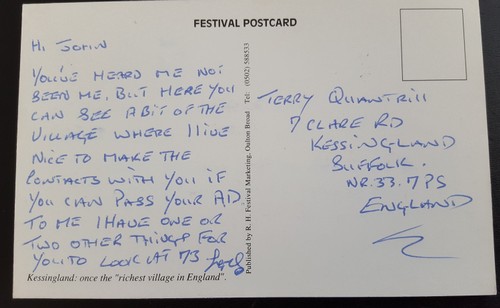 FESTIVAL POSTCARD
HI JOHN
YOU'VE HEARD ME NOT
SEEN ME, BUT HERE YOU
CAN SEE A BIT OF THE
VILLAGE WHERE I LIVE
NICE TO MAKE THE
CONTACTS WITH YOU IF
YOU CAN PASS YOUR AD.
TO ME I HAVE ONE OR
TWO OTHER THINGS FOR
YOU TO LOOK AT 73
Kessingland: once the "richest village in England".
Published by R. H. Festival Marketing, Oulton Broad Tel: (0502) 588533
TERRY QUANTRILL
7 CLARE RD
KESSINGLAND
SUFFOLK.
NR.33.7PS
ENGLAND